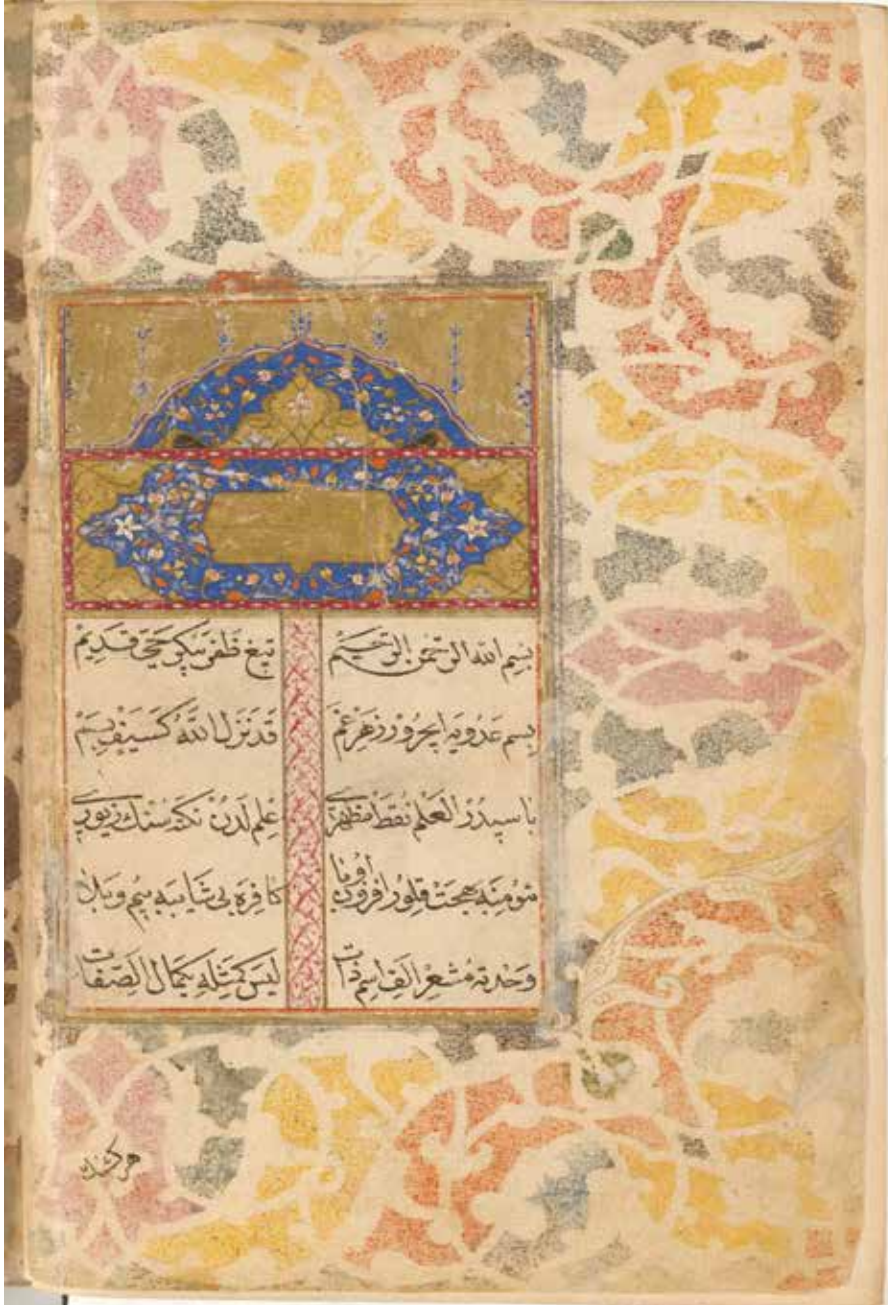 بسم الله الرحمن الرحيم تیغ ظفر پیکر حیّ قدیم
بسم عدویه ایچرور زهر غم قد نزل الله کسیف بسم
باسیدر العلم نقط مظهری علم لدن نکته سنك زیوری
مؤمنه بهجت قلور افزون اوبا کافره بی شائبه بیم وبلا
وحدته مشعر الف اسم ذات لیس کمثله بکمال الصفات